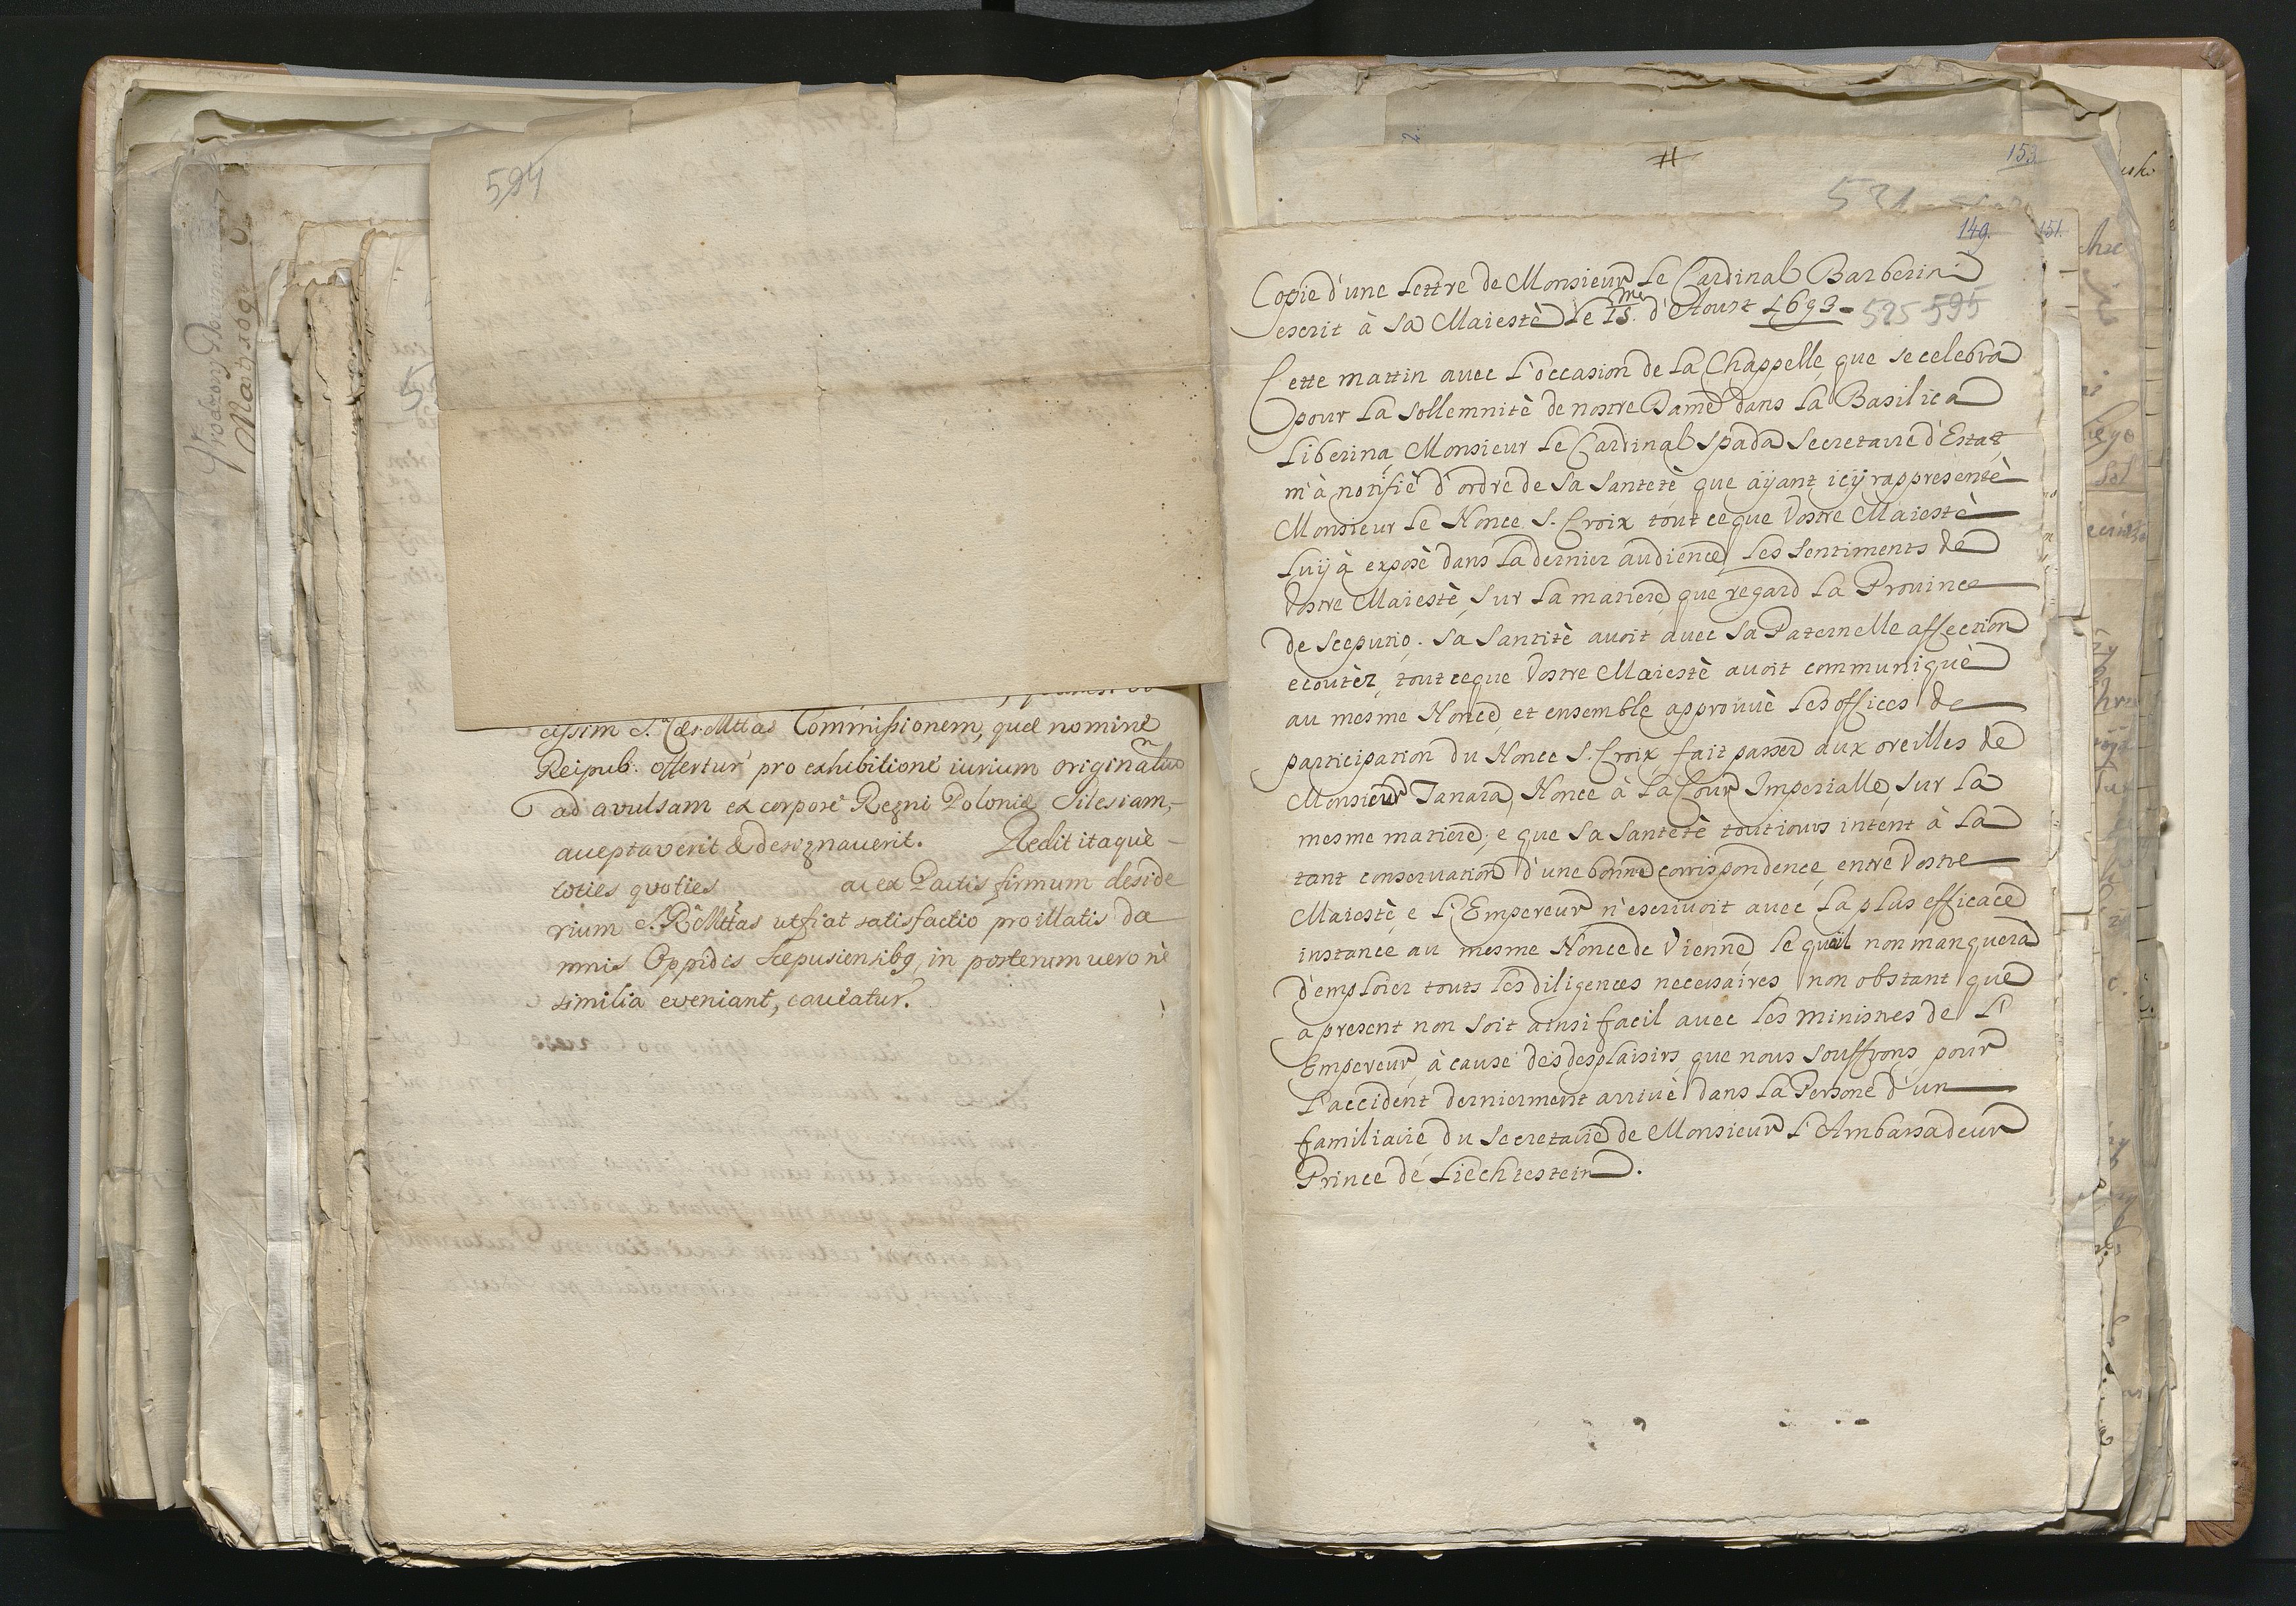 594
cissim S. Caes. Mttas Commissionem, quae nomine
Reipub. offertur pro exhibitione iurium originaliu
ad avulsam ex corpore Regni Poloniae Silesiam,
acceptaverit & designaverit. Redit itaque
toties quoties ac ex Pactis firmum deside
rium S. R. Mttas ut fiat satisfactio pro illatis da
mnis Oppidis Scepusiensibq, in posterum uero ne
similia eveniant, caveatur.
153
149.
151.
Copie d'une Lettre de Monsieur Le Cardinal Barberin
escrit à Sa Maiestè Le 15.me d'Aoust 1693.
525 595
Cette mattin avec L'occasion de La Chappelle que se celebra
pour La Sollemnitè de nostre Dame dans La Basilica
Liberina, Monsieur Le Cardinal Spada Secretaire d'Estat
m'à notifiè d'ordre de Sa Santetè que aÿant icÿ rappresentè
Monsieur Le Nonce S. Croix tout ceque Vostre Maiestè
Luÿ à exposè dans La dernier audience, Les Sentiments de
Vostre Maiestè, Sur La matiere, que regard La Prouince
de Sceputio. Sa Santitè avoit avec Sa Paternelle affection
ecoutèr, tout ceque Vostre Maiestè avoit communiquè
au mesme Nonce, et ensemble approuuè Les offices de
participation du Nonce S. Croix fait passer aux oreilles de
Monsieur Tanara, Nonce à La Cour Imperialle, Sur La
mesme matiere; e que Sa Santetè toutiours intent à La
tant conservation d'une bonne corrispondence, entre Vostre
Maiestè, e L'Empereur n'escriuoit avec La plus efficace
instance au mesme Nonce de Vienne, Le quel non manquera
d'emploier touts Les diligences necessaires, non obstant que
a present non Soit ainsi facil avec Les ministres de L'
Empereur, à cause des desplaisirs, que nous Souffrons, pour
L'accident dernierment arriuè dans La Persone d'un
familiarie, du Secretarie de Monsieur L'Ambassadeur
Prince de Liechtestein.